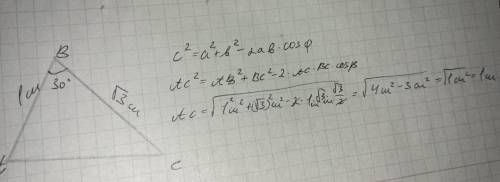 B
1m
30°
√3 m
C
c² = a² + b² - 2ab · cosφ
AC² = AB² + BC² - 2 · AC · BC · cosβ
AC = √(1²m² + (√3)²m² - 2 · 1m √3m √3/2) = √(4m² - 3m²) = √(1m²) = 1m